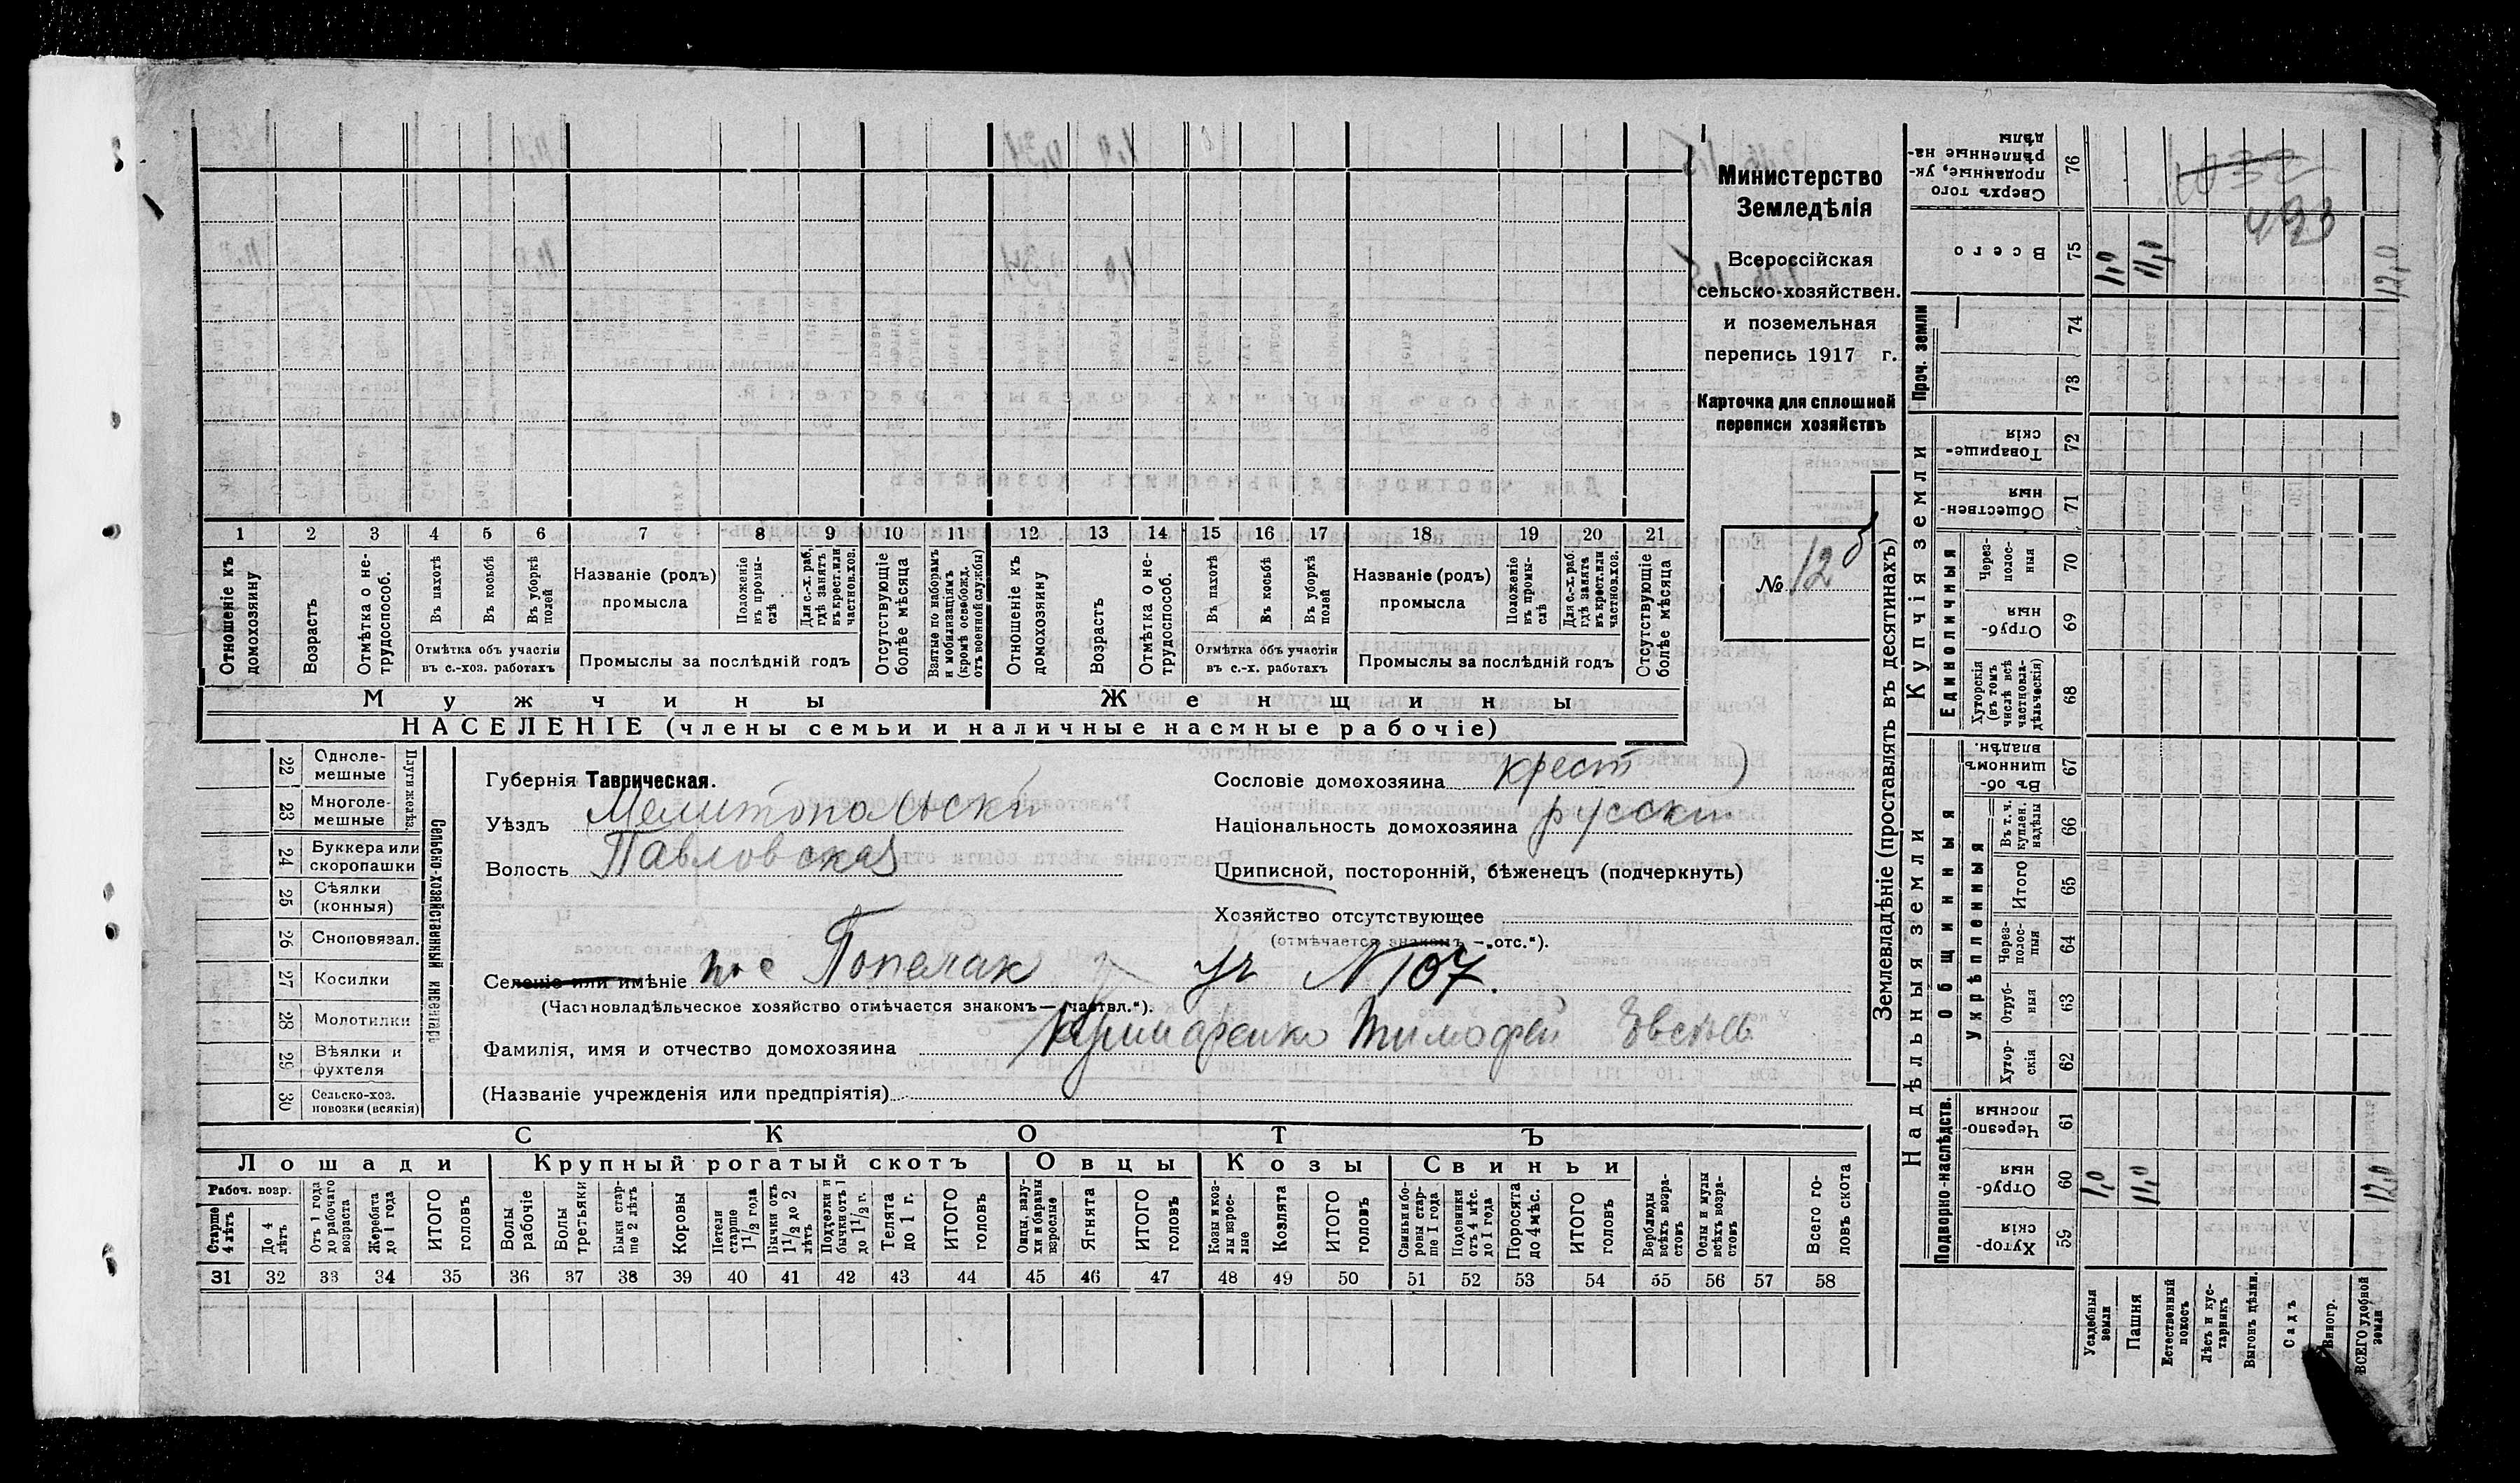 Министерство
Земледѣлія
Всероссійская
сельско-хозяйствен.
и поземельная
перепись 1917 г.
Карточка для сплошной
переписи хозяйствъ
№ 12
1 2 3 4 5 6 7 8 9 10 11 12 13 14 15 16 17 18 19 20 21
Отношеніе къ домохозяину
Возрастъ
Отмѣтка о не-трудоспособ.
Въ пахотѣ
Въ косьбѣ
Въ уборкѣ полей
Отмѣтка объ участіи
въ с.-хоз. работахъ
Названіе (родъ)
промысла
Положеніе въ промы-слѣ
Для с.-х. раб. гдѣ занятъ въ крест. или частнов. хоз.
Промыслы за послѣдній годъ
Отсутствующіе болѣе мѣсяца
Взятые по наборамъ и мобилизаціямъ (кромѣ освобожд. отъ военной службы)
Отношеніе къ домохозяину
Возрастъ
Отмѣтка о не-трудоспособ.
Въ пахотѣ
Въ косьбѣ
Въ уборкѣ полей
Отмѣтка объ участіи
въ с.-х. работахъ
Названіе (родъ)
промысла
Положеніе въ промы-слѣ
Для с.-х. раб. гдѣ занята въ крест. или частнов. хоз.
Промыслы за послѣдній годъ
Отсутствующіе болѣе мѣсяца
Мужчины
Женщины
НАСЕЛЕНІЕ (члены семьи и наличные наемные рабочіе)
22 Одноле-мешные
23 Многоле-мешные
Плуги желѣз.
24 Буккера или скоропашки
25 Сѣялки (конныя)
26 Сноповязал.
27 Косилки
28 Молотилки
29 Вѣялки и фухтеля
30 Сельско-хоз. повозки (всякія)
Сельско-хозяйственный инвентарь
Губернія Таврическая.
Уѣздъ Мелитопольскій
Волость Павловская
Селеніе или имѣніе пос Попелак уч N 107.
(Частновладѣльческое хозяйство отмѣчается знакомъ—„частвл.“).
Фамилія, имя и отчество домохозяина Кушнаренко Тимофей Евсѣев
(Названіе учрежденія или предпріятія)
Сословіе домохозяина крест
Національность домохозяина русскій
Приписной, посторонній, бѣженецъ (подчеркнуть)
Хозяйство отсутствующее
(отмѣчается знакомъ —„отс.“).
СКОТЪ
Лошади
Крупный рогатый скотъ
Овцы
Козы
Свиньи
Рабоч. возр.
Старше 4 лѣтъ
До 4 лѣтъ
Отъ 1 года до рабочаго возраста
Жеребята до 1 года
ИТОГО головъ
Волы рабочіе
Волы третьяки
Быки стар-ше 2 лѣтъ
Коровы
Нетели старше 1 1/2 года
Бычки отъ 1 1/2 до 2 лѣтъ
Подтелки и бычки отъ 1 до 1 1/2 г.
Телята до 1 г.
ИТОГО головъ
Овцы, валу-хи и бараны взрослые
Ягнята
ИТОГО головъ
Козы и коз-лы взрос-лые
Козлята
ИТОГО головъ
Свиньи и бо-ровы стар-ше 1 года
Подсвинки отъ 4 мѣс. до 1 года
Поросята до 4 мѣс.
ИТОГО головъ
Верблюды всѣхъ возра-стовъ
Ослы и мулы всѣхъ возра-стовъ
Всего го-ловъ скота
31 32 33 34 35 36 37 38 39 40 41 42 43 44 45 46 47 48 49 50 51 52 53 54 55 56 57 58
Землевладѣніе (проставлять въ десятинахъ)
Надѣльныя земли
Купчія земли
Проч. земли
Подворно-наслѣдств.
Общинныя
Укрѣпленныя
Единоличныя
Хутор-скія 59
Отруб-ныя 60 1,0 11,0 12,0
Черезпо-лосныя 61
Хутор-скія 62
Отруб-ныя 63
Через-полос-ныя 64
Итого 65
Въ т. ч. куплен. надѣлы 66
Въ об-щинномъ владѣн. 67
Хуторскія (въ томъ числѣ всѣ частновла-дѣльческія) 68
Отруб-ныя 69
Через-полос-ныя 70
Обществен-ныя 71
Товарище-скія 72
73
74
Всего 75 1,0 11,0 12,0
Сверхъ того проданные, ук-рѣпленные на-дѣлы 76
493
Усадебныя земли
Пашня
Естественный покосъ
Лѣсъ и кус-тарникъ
Выгонъ цѣлин.
Садъ
Виногр.
ВСЕГО удобной земли